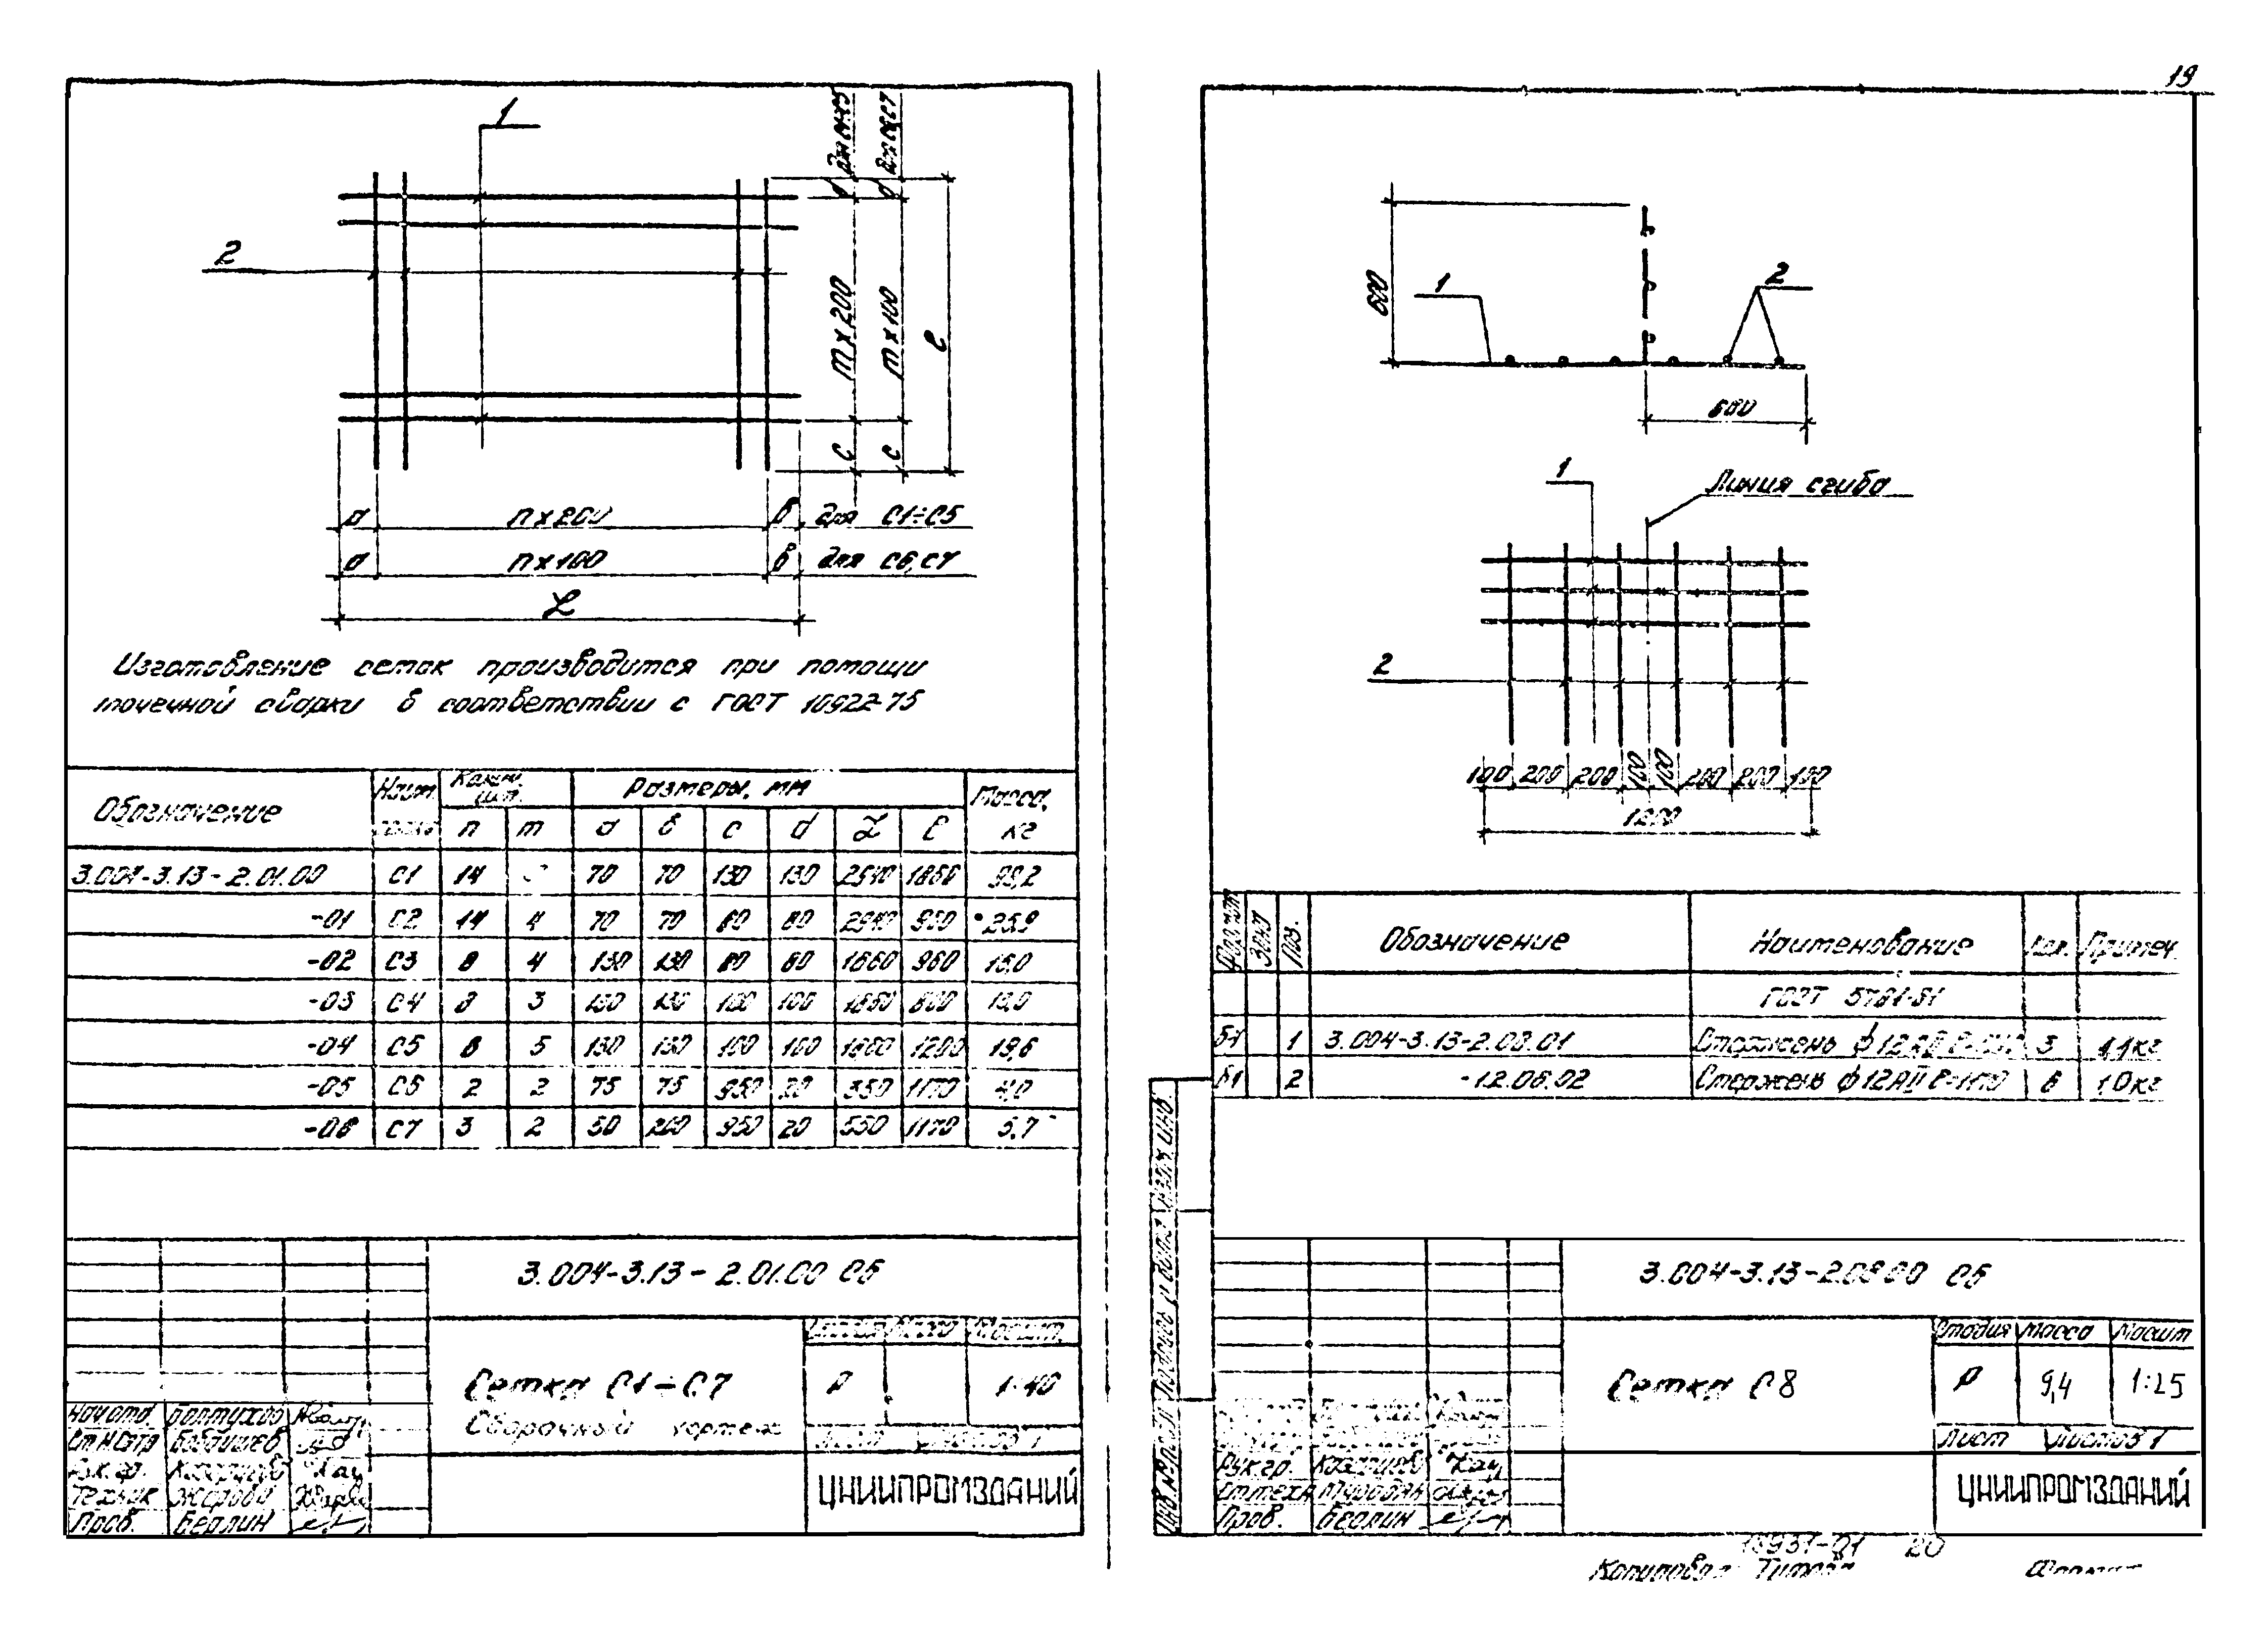 19
1
2
d для С1÷С5
d для С6, С7
m x 200
m x 100
ℓ
c
c
a n x 200 б для С1÷С5
a n x 100 б для С6, С7
L
Изготовление сеток производится при помощи
точечной сварки в соответствии с ГОСТ 10922-75
Обозначение Размеры, мм Масса, кг
n m a б c d L ℓ
3.004-3.13-2.01.00 С1 14 70 70 130 130 1860
-01 С2 14 4 70 70 80 80 2940 960 25,9
-02 С3 8 4 130 130 80 80 1860 960 15,0
-03 С4 8 3 130 130 100 100 1860 800
-04 С5 8 5 130 130 100 100 1860 1200 19,6
-05 С6 2 2 75 75 950 20 350 1170 4,0
-06 С7 3 2 50 200 950 20 550 1170 5,7
3.004-3.13-2.01.00 СБ
Сетка С1÷С7
Сборочный чертеж
Масшт.
Р 1:40
ЦНИИПРОМЗДАНИЙ
Нач.отд.
Рук.гр.
Техник Жарова
Пров. Берлин
600
1
2
600
1
Линия сгиба
2
100 200 200 100 100 200 200 100
1200
Формат Зона Поз. Обозначение Наименование Кол. Примеч.
ГОСТ 5781-81
БЧ 1 3.004-3.13-2.08.01 Стержень ф12АII 3 1,1кг
БЧ 2 -12.06.02 Стержень ф12АII ℓ=1170 6 1,0кг
3.004-3.13-2.08.00 СБ
Сетка С8
Стадия Масса Масшт
Р 9,4 1:25
Лист Листов 1
ЦНИИПРОМЗДАНИЙ
Рук.гр.
Ст.техн
Пров. Берлин
18931-01 20
Копировал